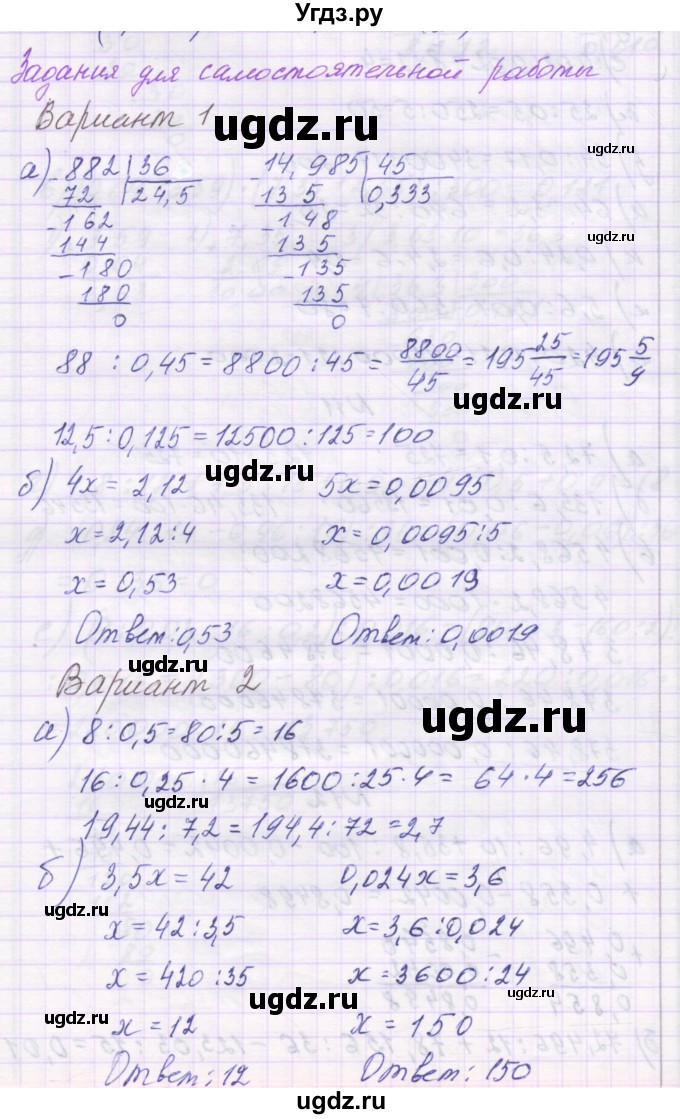 Угдз.ру
Задания для самостоятельной работы
Вариант 1
ugdz.ru
ugdz.ru
а) 882 | 36    14,985 | 45
72 | 24,5    13 5 | 0,333
162    1 48
144    13 5
180    135
180    135
0    0
ugdz.ru
88 : 0,45 = 8800 : 45 = 8800/45 = 195 25/45 = 195 5/9
ugdz.ru
12,5 : 0,125 = 12500 : 125 = 100
ugdz.ru
б) 4x = 2,12    5x = 0,0095
x = 2,12 : 4    x = 0,0095 : 5
x = 0,53    x = 0,0019
Ответ: 0,53    Ответ: 0,0019
ugdz.ru
Вариант 2
ugdz.ru
а) 8 : 0,5 = 80 : 5 = 16
16 : 0,25 · 4 = 1600 : 25 · 4 = 64 · 4 = 256
ugdz.ru
19,44 : 7,2 = 194,4 : 72 = 2,7
б) 3,5x = 42    0,024x = 3,6
ugdz.ru
x = 42 : 3,5    x = 3,6 : 0,024
x = 420 : 35    x = 3600 : 24
ugdz.ru
ugdz.ru
x = 12    x = 150
Ответ: 12    Ответ: 150
ugdz.ru